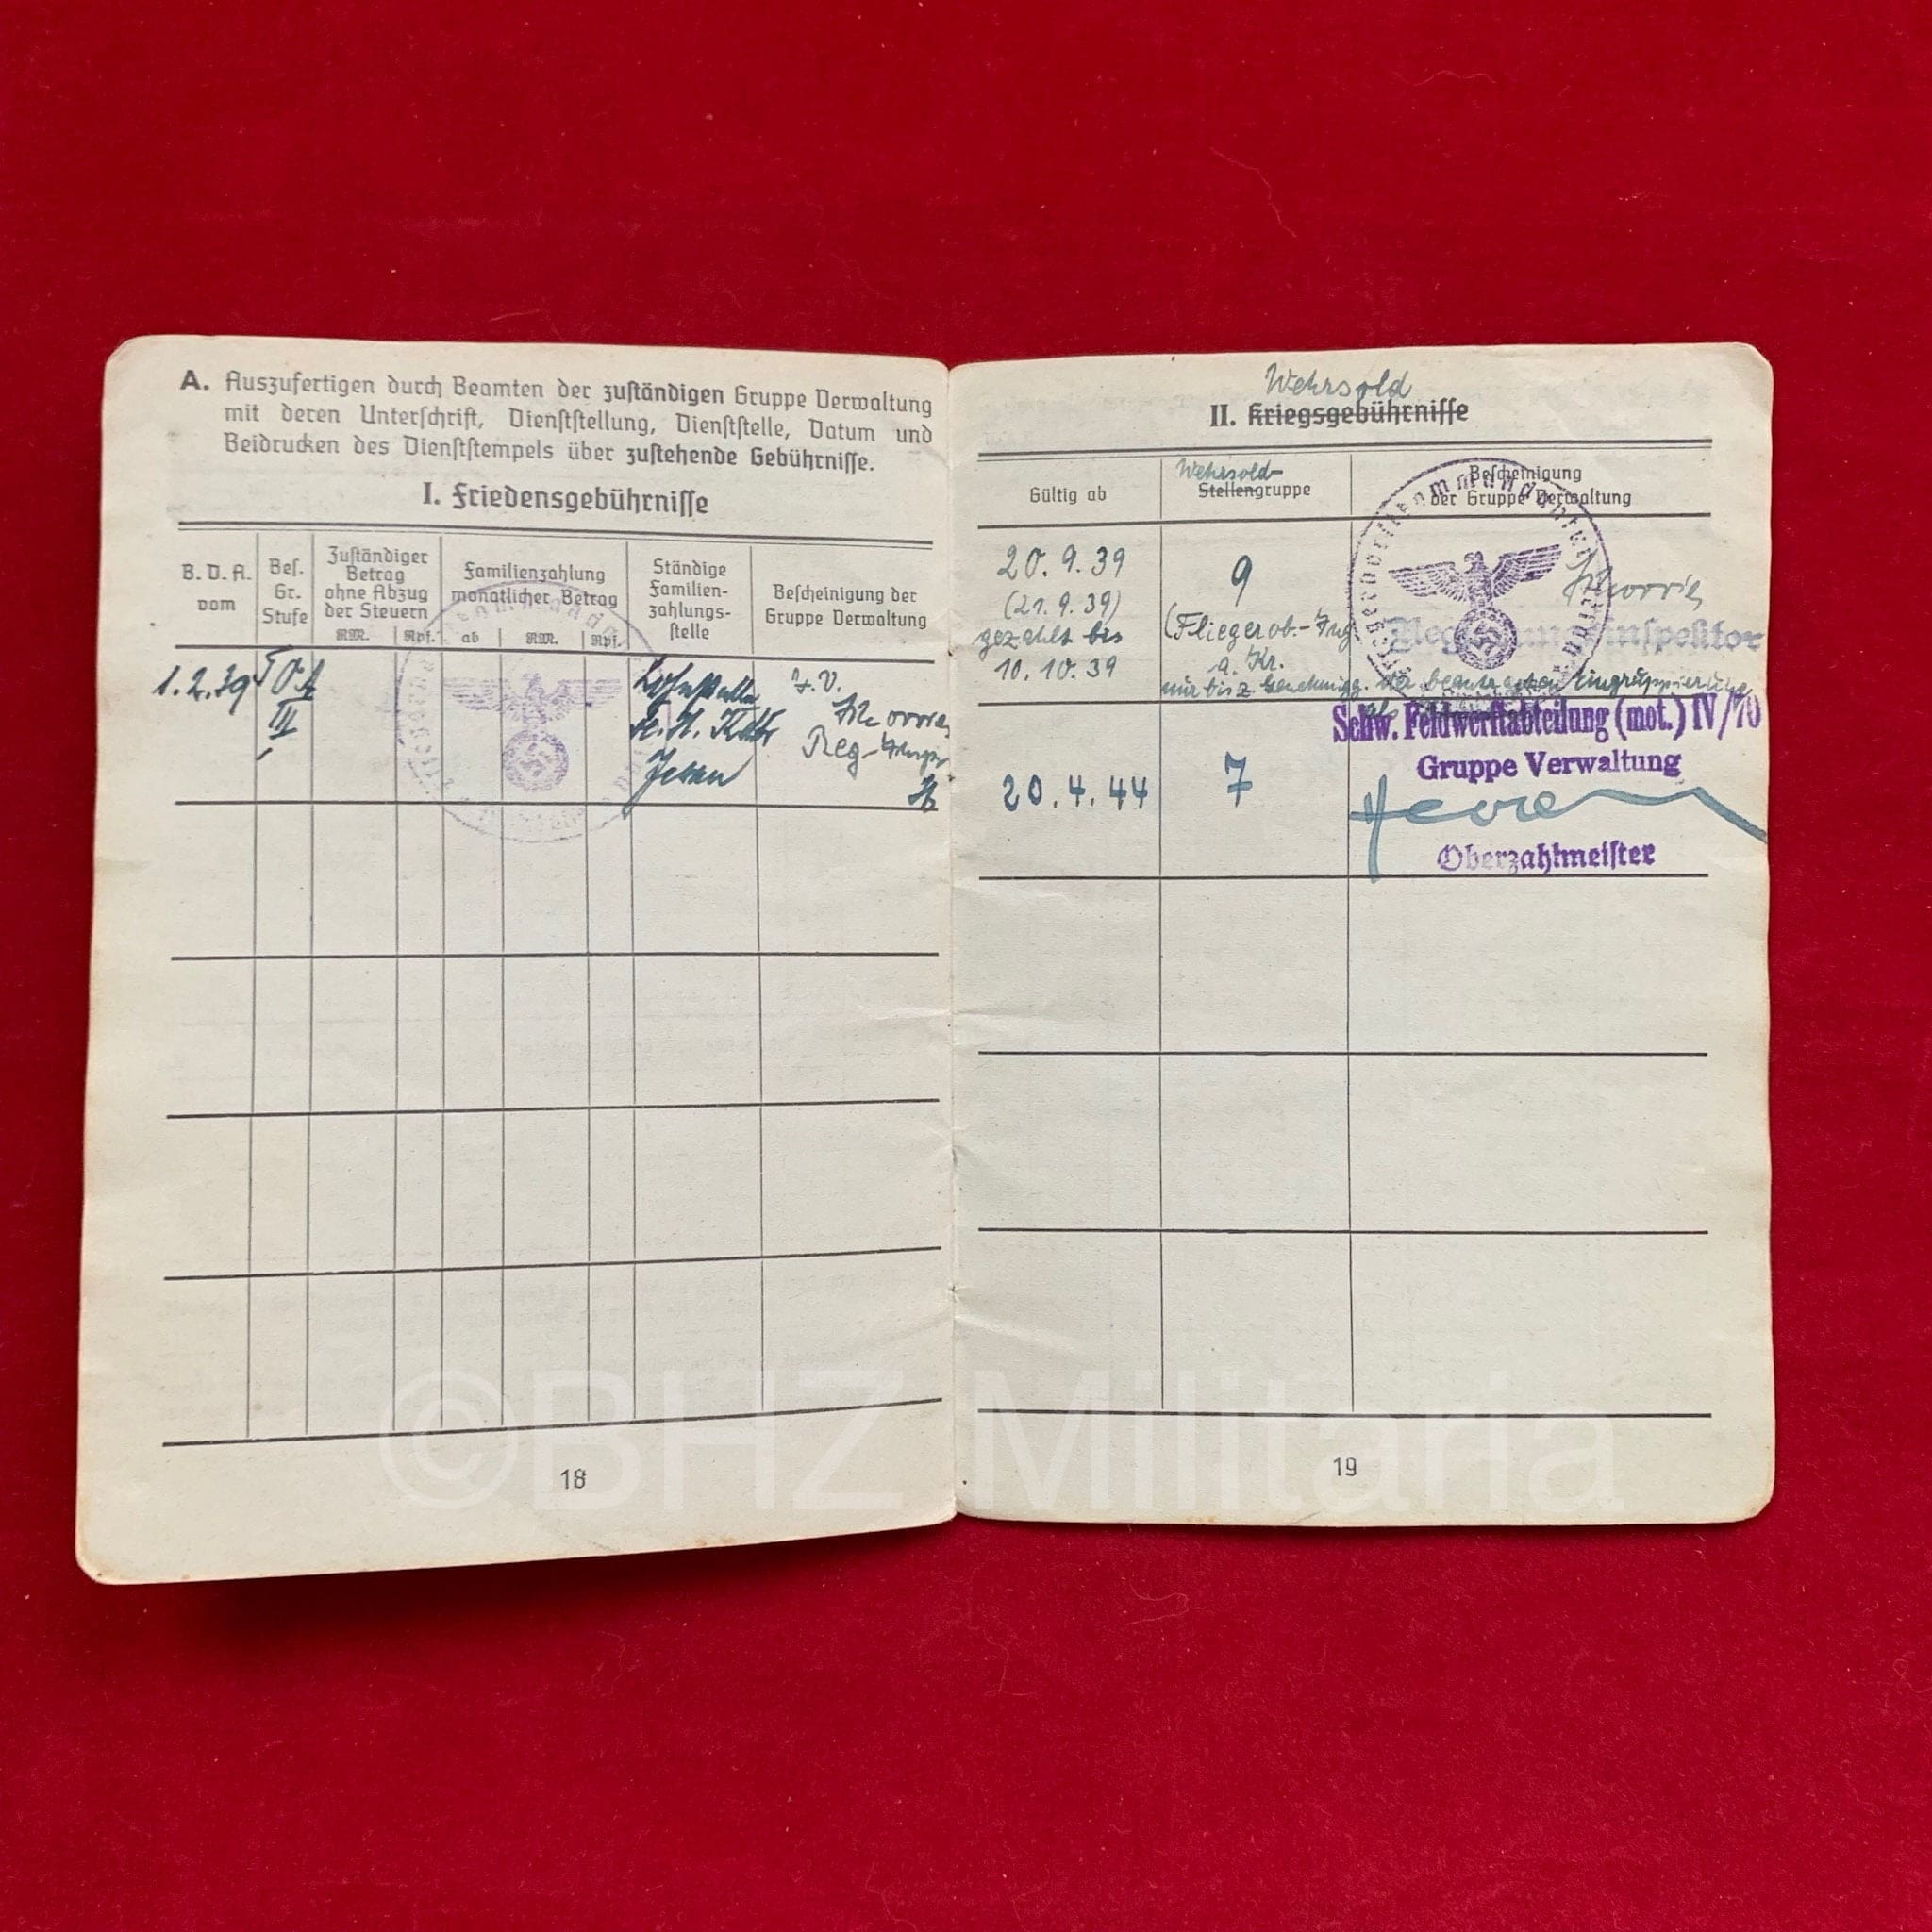 A. Auszufertigen durch Beamten der zuständigen Gruppe Verwaltung
mit deren Unterschrift, Dienststellung, Dienststelle, Datum und
Beidrucken des Dienststempels über zustehende Gebührnisse.
I. Friedensgebührnisse
B. D. A.
vom
Bes.
Gr.
Stufe
Zuständiger
Betrag
ohne Abzug
der Steuern
RM. Rpf.
Familienzahlung
monatlicher Betrag
ab RM. Rpf.
Ständige
Familien-
zahlungs-
stelle
Bescheinigung der
Gruppe Verwaltung
1.2.39
III
J.V.
18
Wehrsold
II. Kriegsgebührnisse
Gültig ab
Wehrsold
Stellengruppe
Bescheinigung
der Gruppe Verwaltung
20. 9. 39
(21. 9. 39)
gezahlt bis
10. 10. 39
9
(Fliegerob.-Ing
a. Kr.
nur bis z. Genehmigg. der beantragten Eingruppierung
Schw. Feldwerftabteilung (mot.) IV/70
Gruppe Verwaltung
20. 4. 44
7
Oberzahlmeister
19
©BHZ Militaria